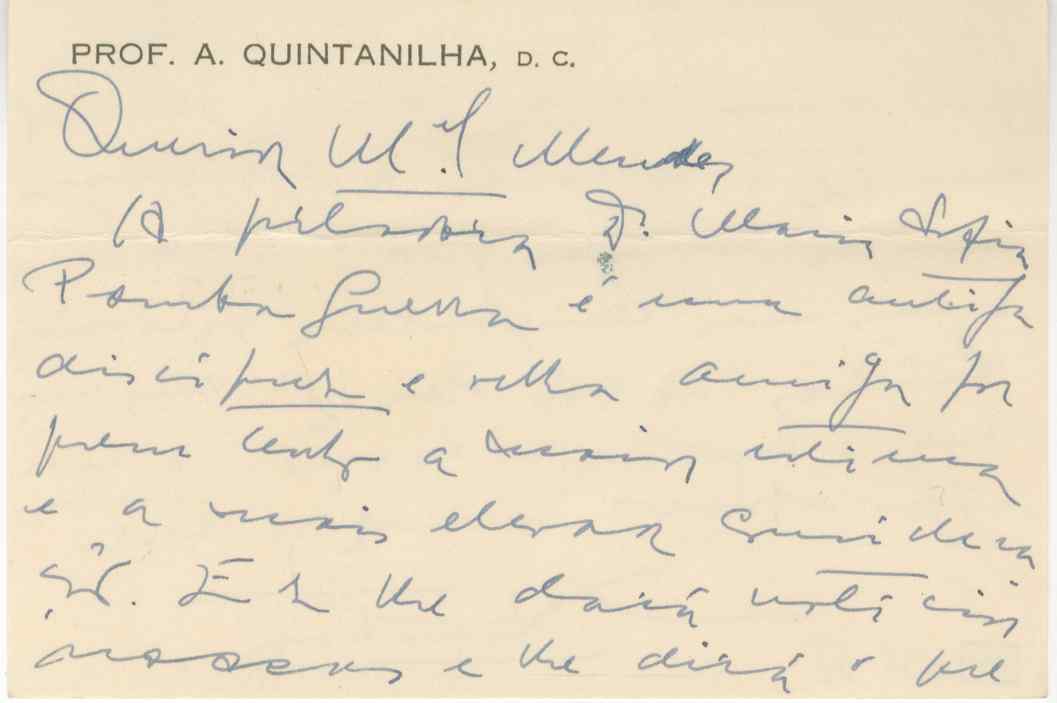 PROF. A. QUINTANILHA, D. C.
Querido M.el Mendes,
A portadora Dr. Maria Sofia
Pomba Guerra é uma antiga
discipula e velha amiga por
quem tenho a maior estima
e a mais elevada considera
ção. Ela lhe dará notícias
nossas e lhe dirá o que